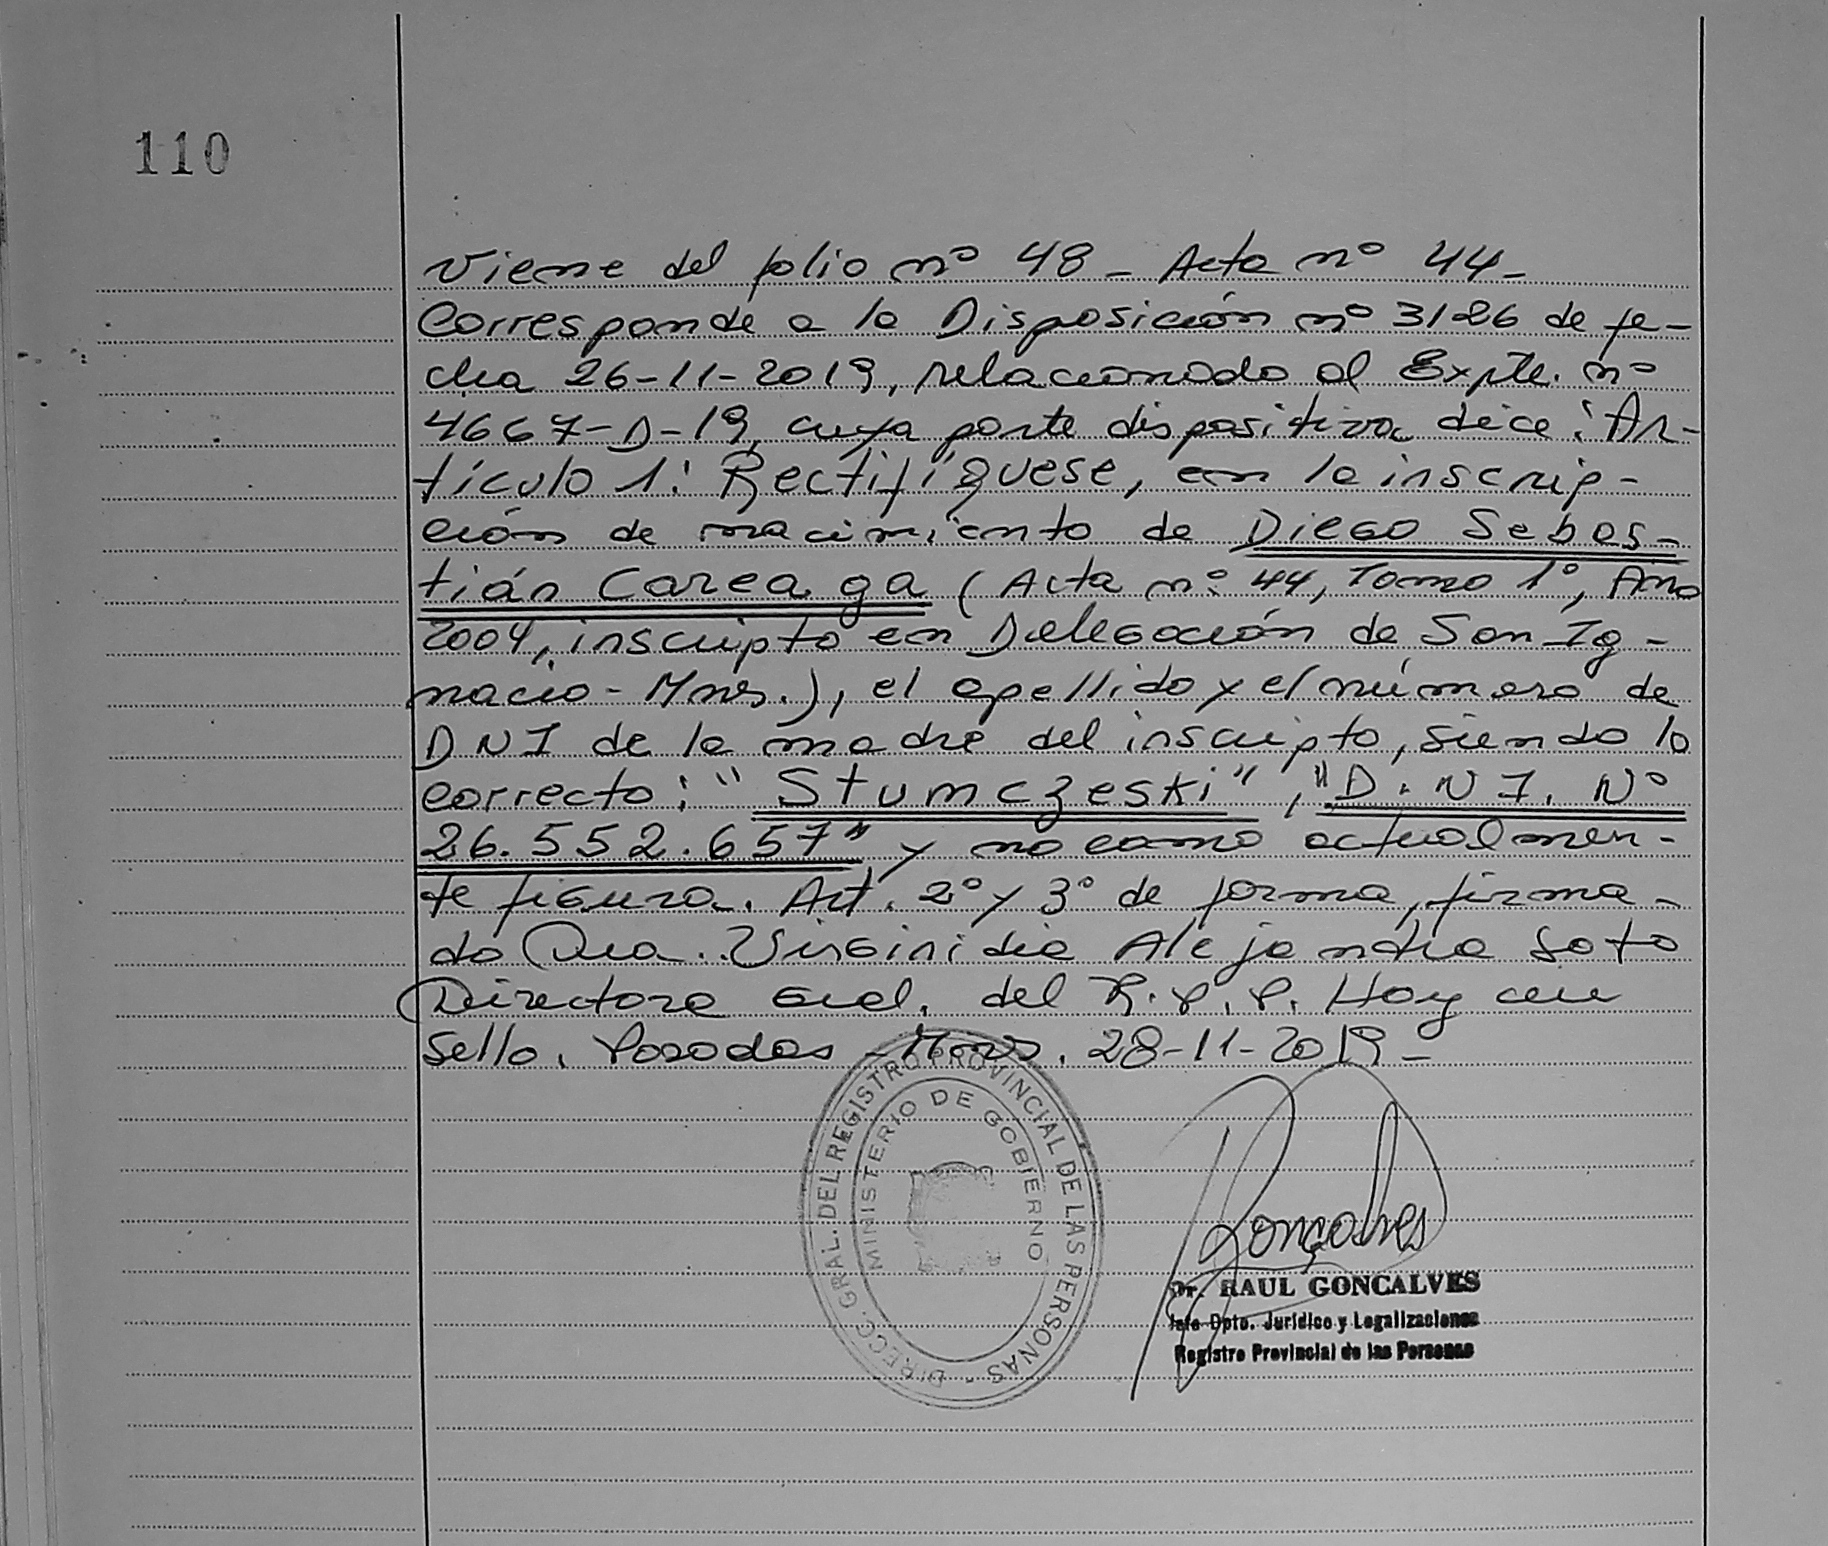 110
Viene del folio nº 48 - Acta nº 44-
Corresponde a la Disposición nº 3126 de fe-
cha 26-11-2019, relacionado al Expte. nº
4667-D-19, cuya parte dispositiva dice: "Ar-
tículo 1: Rectifíquese, en la inscrip-
ción de nacimiento de Diego Sebas-
tián Careaga (Acta nº 44, Tomo 1º, Año
2004, inscripto en Delegación de San Ig-
nacio - Mnes.), el apellido y el número de
DNI de la madre del inscripto, siendo lo
correcto: "Stumczeski", "D.N.I. Nº
26.552.657" y no como actualmen-
te figura. Art. 2º y 3º de forma, firma-
do Dra. Virginidia Alejandra Soto
Directora Gral. del R.P.P. Hay un
sello. Posadas - Mnes. 28-11-2019-
DIRECC. GRAL. DEL REGISTRO PROVINCIAL DE LAS PERSONAS -
MINISTERIO DE GOBIERNO
Gonçalves
Dr. RAUL GONCALVES
Jefe Dpto. Jurídico y Legalizaciones
Registro Provincial de las Personas